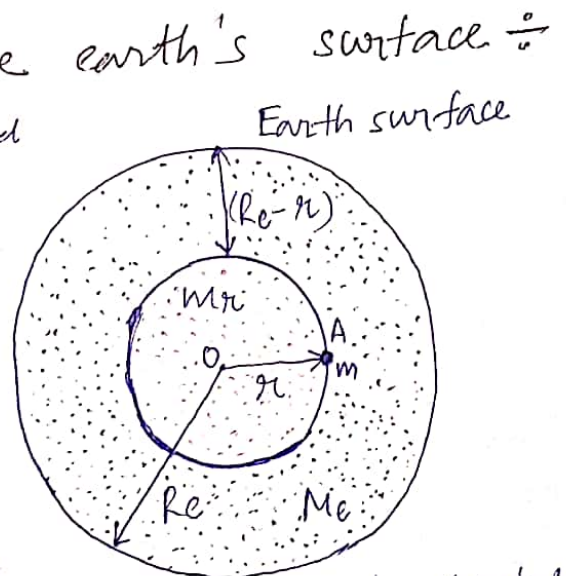 e earth's surface ÷
d Earth surface
(Re-r)
Mr
A
O
m
r
Re Me